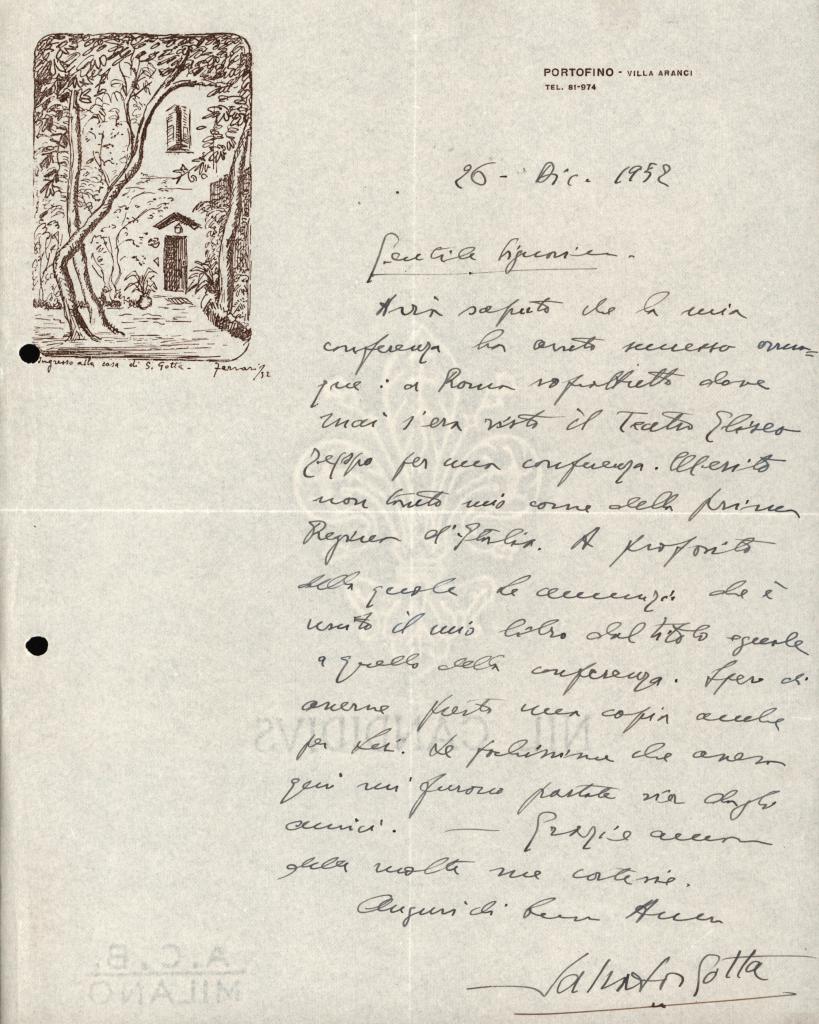 PORTOFINO - VILLA ARANCI
TEL. 81-974
26 - Dic. 1952
Gentile Signorina.
Avrà saputo che la mia
conferenza ha avuto successo ovun=
que: a Roma soprattutto dove
mai s'era visto il Teatro Eliseo
zeppo per una conferenza. Merito
non tanto mio come della prima
Regina d'Italia. A proposito
della quale Le annunzio che è
uscito il mio libro dal titolo eguale
a quello della conferenza. Spero di
averne presto una copia anche
per Lei. Le pochissime che avevo
qui mi furono portate via dagli
amici. — Grazie ancora
della molte sue cortesie.
Auguri di buon Anno
Salvator Gotta
Ingresso alla casa di S. Gotta - Ferrari/52
NIL CANDIDIVS
A.C.B.
MILANO